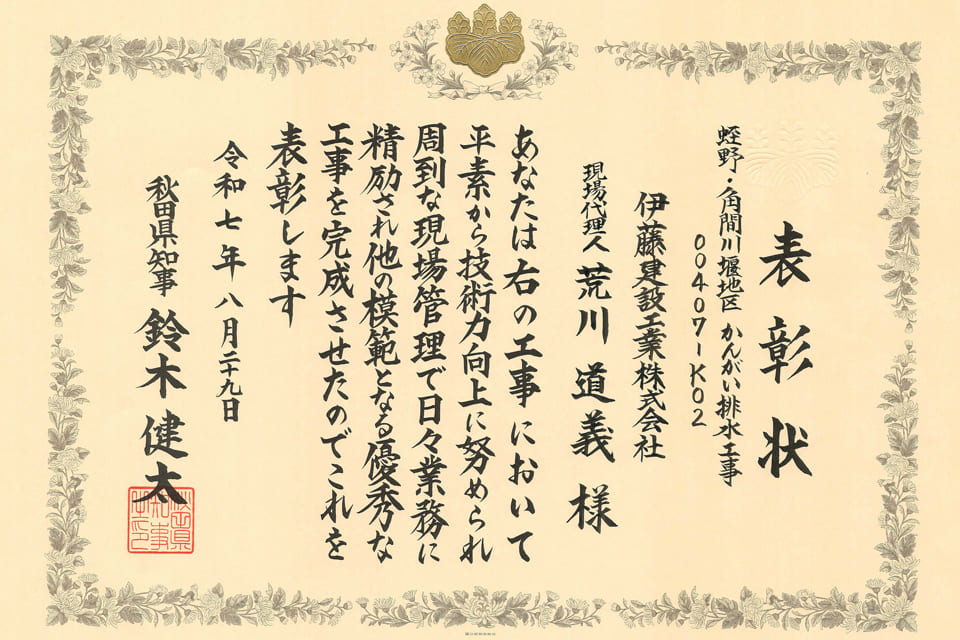 表彰状
蛭野・角間川堰地区 かんがい排水工事
00407-K02
伊藤建設工業株式会社
現場代理人 荒川道義様
あなたは右の工事において
平素から技術力向上に努められ
周到な現場管理で日々業務に
精励され他の模範となる優秀な
工事を完成させたのでこれを
表彰します
令和七年八月二十九日
秋田県知事 鈴木健太